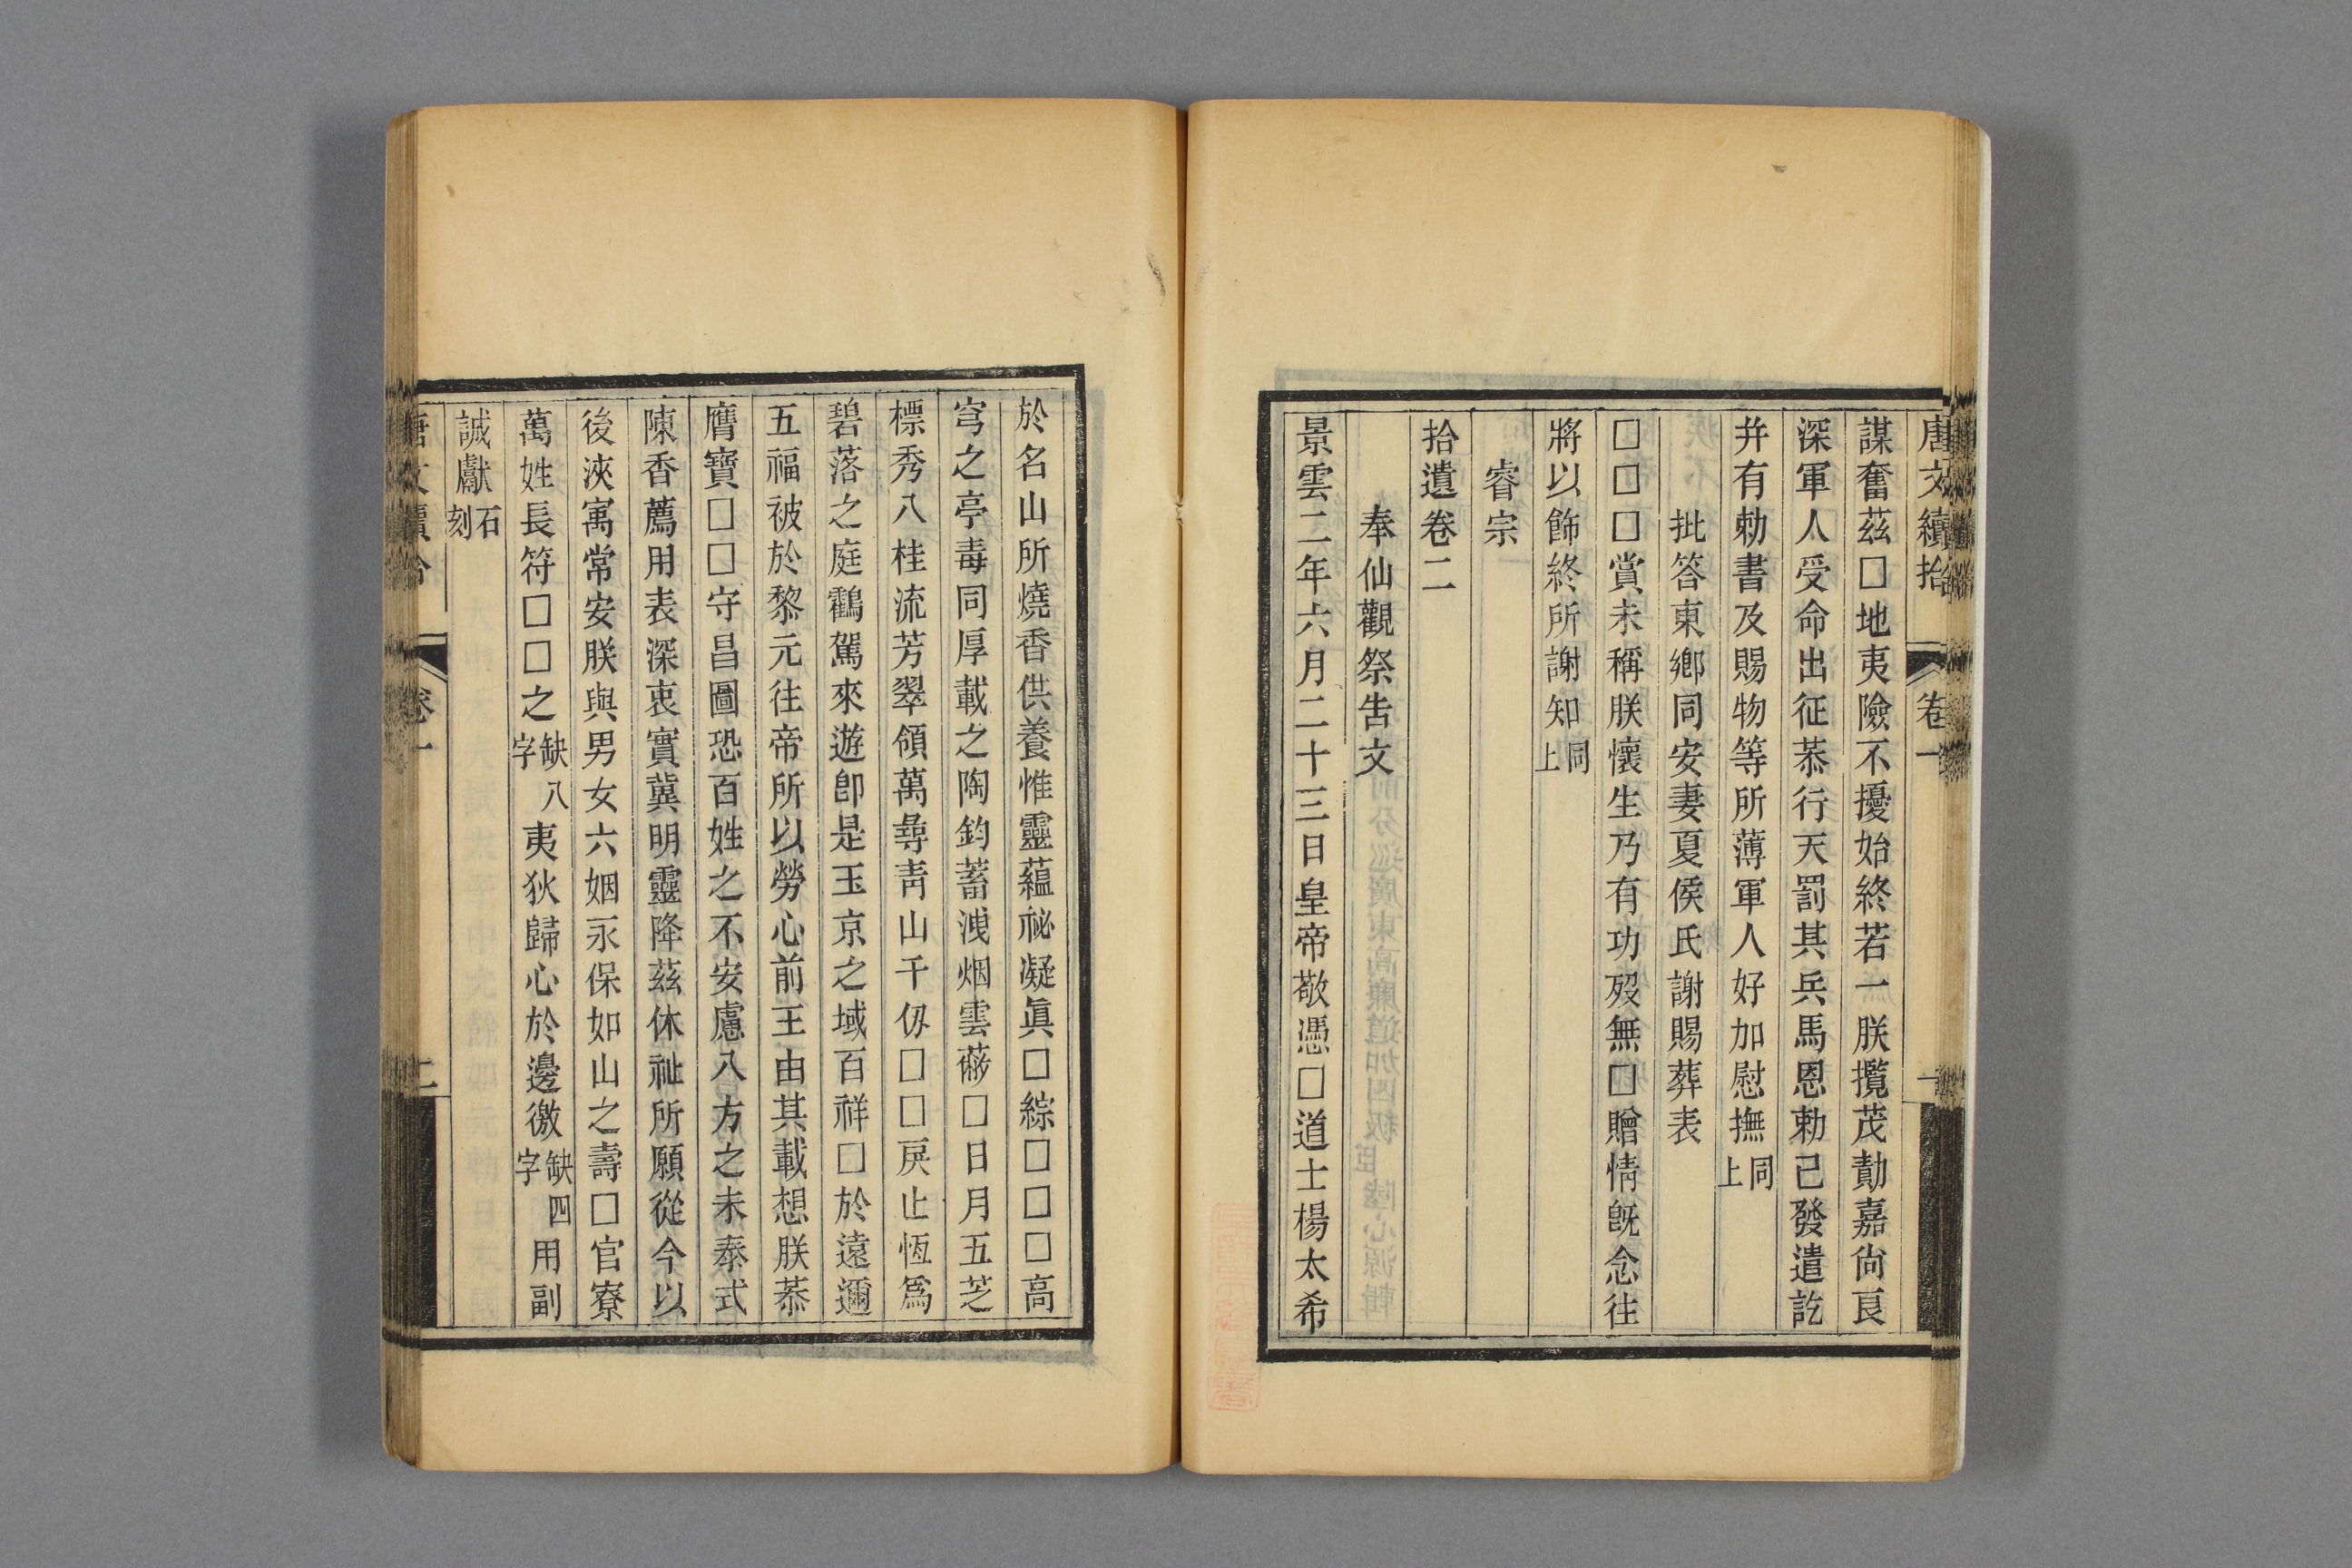 唐文續拾 卷一 一
謀奮茲□地夷險不擾始終若一朕攬茂勣嘉尙良
深軍人受命出征恭行天罰其兵馬恩勅已發遣訖
幷有勅書及賜物等所薄軍人好加慰撫同上
批答東鄉同安妻夏侯氏謝賜葬表
□□□賞未稱朕懷生乃有功歿無□贈情旣念往
將以飾終所謝知同上
睿宗
拾遺卷二
奉仙觀祭告文
景雲二年六月二十三日皇帝敬憑□道士楊太希
於名山所燒香供養惟靈蘊祕凝眞□綜□□□高
穹之亭毒同厚載之陶鈞蓄洩烟雲蔽□日月五芝
標秀八桂流芳翠領萬尋靑山千仭□□戾止恆爲
碧落之庭鸖駕來遊卽是玉京之域百祥□於遠邇
五福被於黎元往帝所以勞心前王由其載想朕恭
膺寶□□守昌圖恐百姓之不安慮八方之未泰式
陳香薦用表深衷實冀明靈降茲休祉所願從今以
後浹寓常安朕與男女六姻永保如山之壽□官寮
萬姓長符□□之缺八字夷狄歸心於邊徼缺四字用副
誠獻石刻
唐文續拾 卷一 二